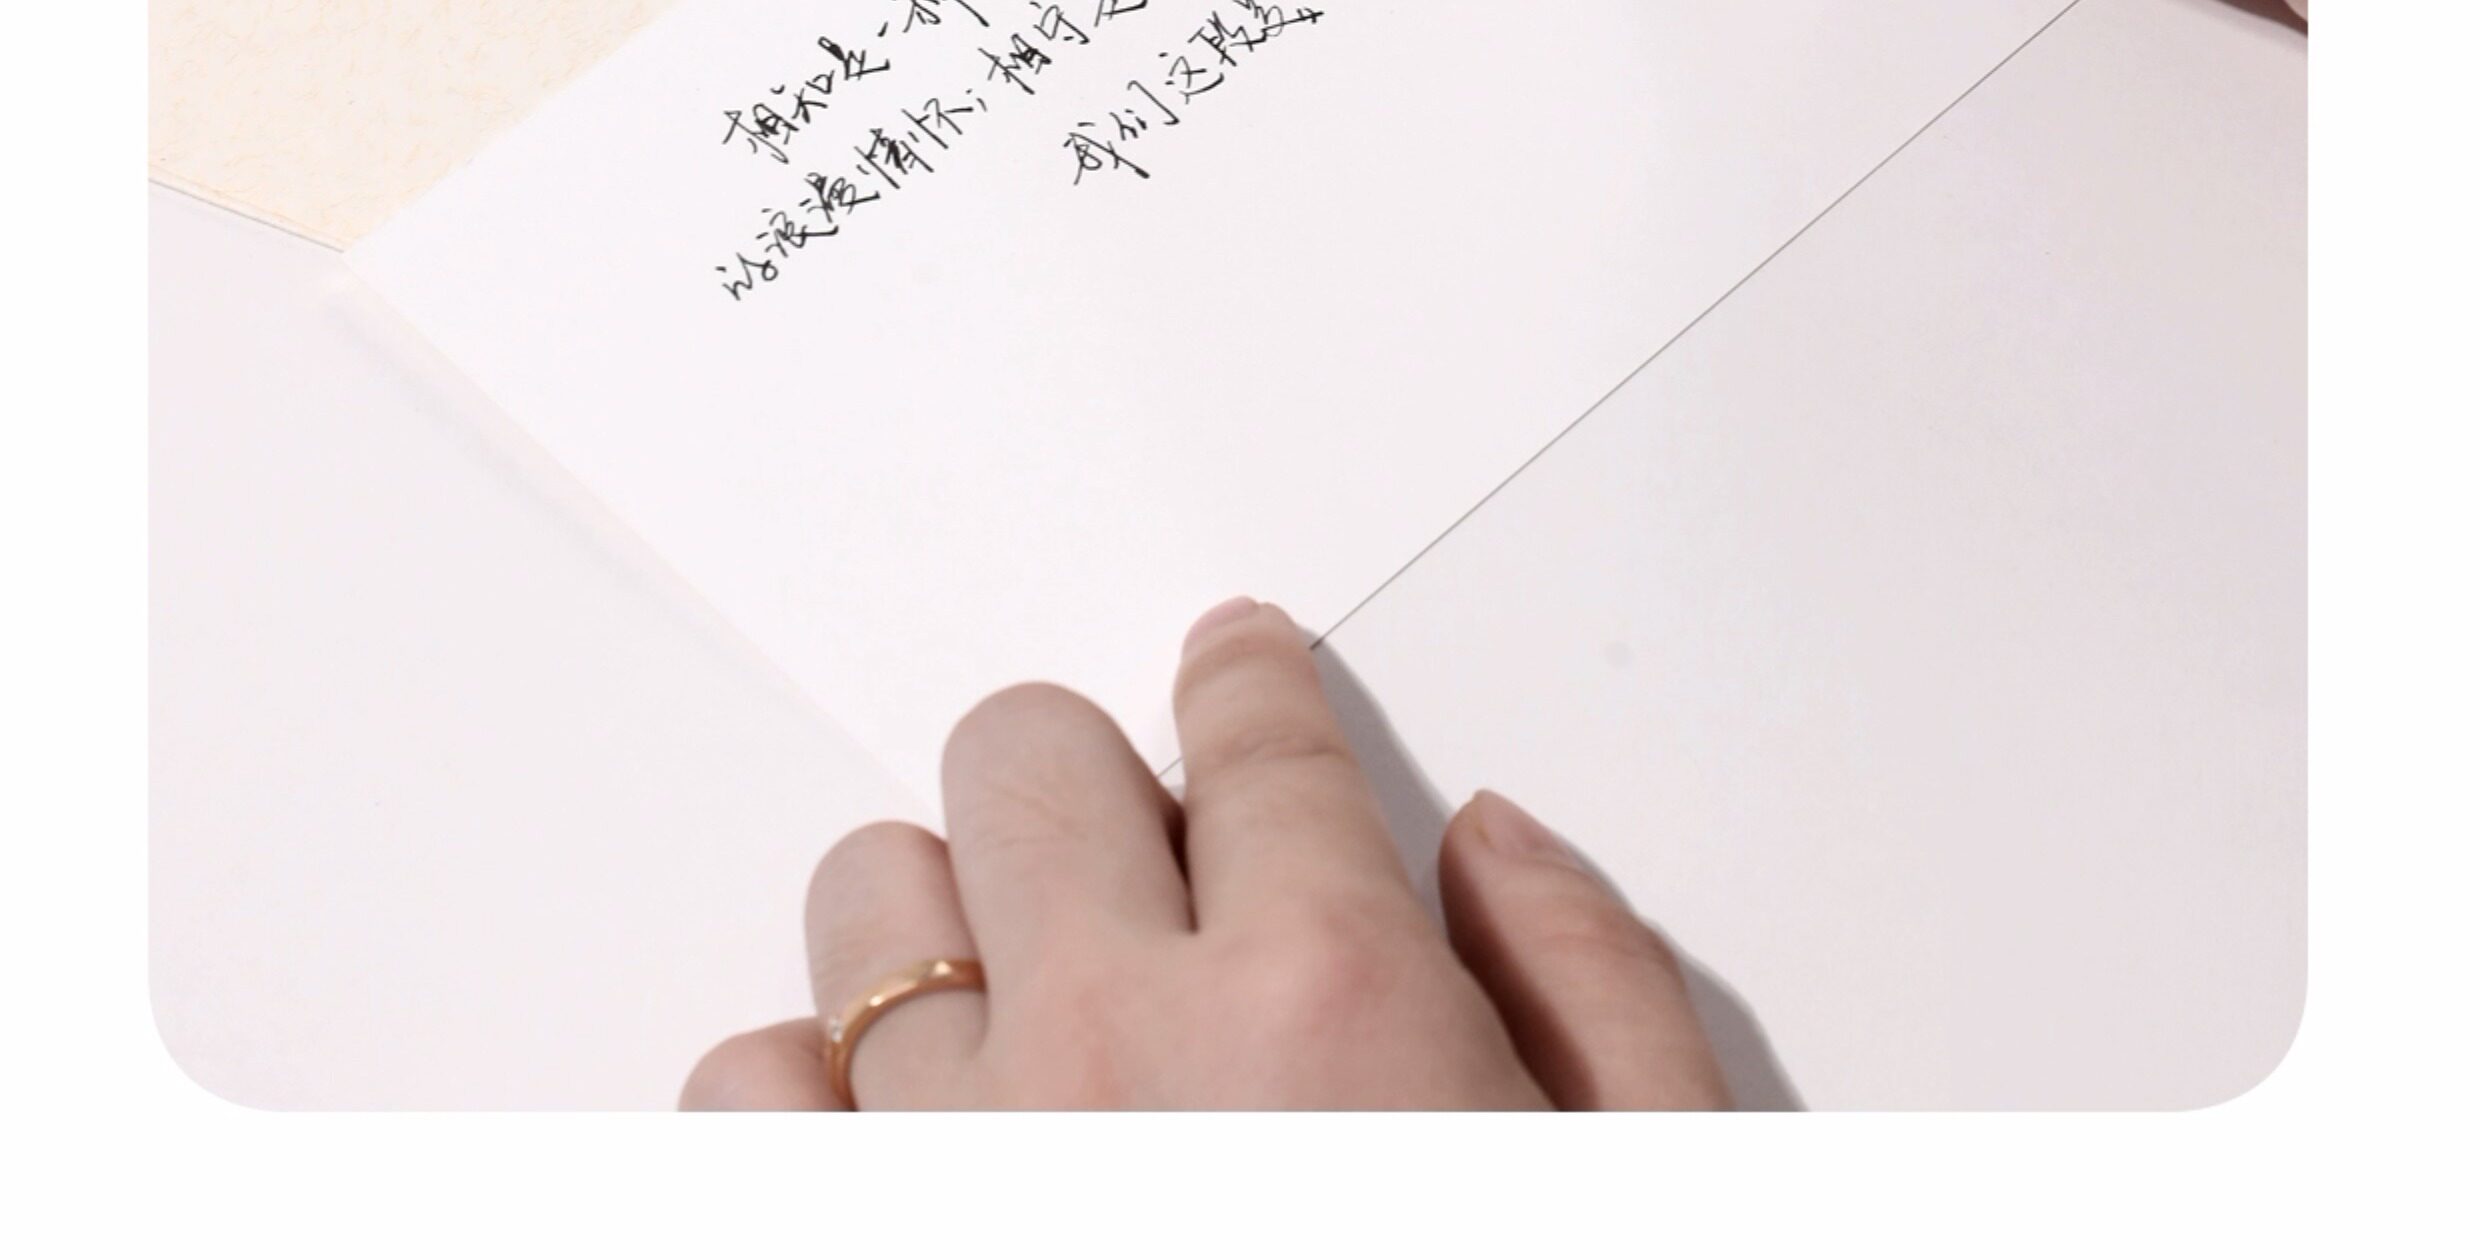 相知是一种
的浪漫情怀；相守是
我们这段